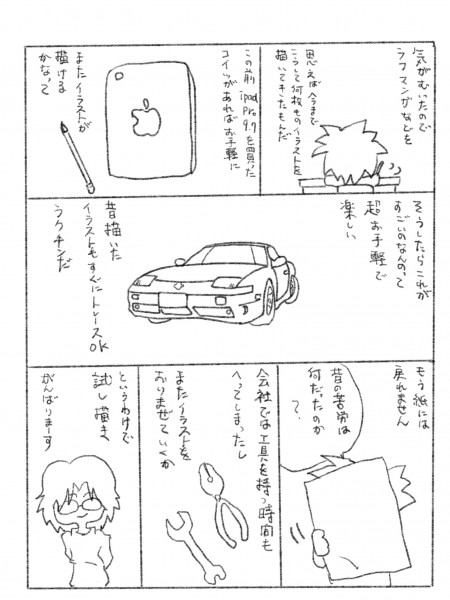 気がむいたので
ラフマンガなどを
思えば今まで
こうして何枚ものイラストを
描いてきたもんだ
この前 ipad
Pro 9.7を買った
コイツがあればお手軽に
またイラストが
描ける
かなって
そうしたらこれが
すごいのなんのって
超お手軽で
楽しい
昔描いた
イラストもすぐにトレースOK
ラクチンだ
もう紙には
戻れません
昔の苦労は
何だったのか
?
会社では工具を持つ時間も
へってしまったし
またイラストを
おりまぜていくか
というわけで
試し描き
がんばりまーす